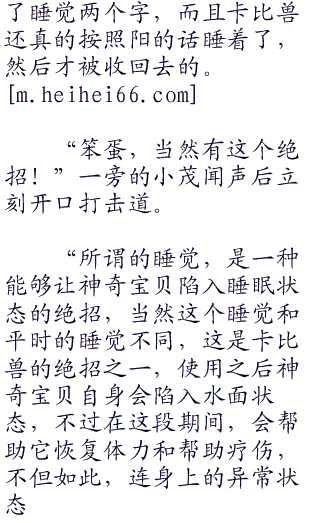 了睡觉两个字，而且卡比兽
还真的按照阳的话睡着了，
然后才被收回去的。
[m.heihei66.com]
“笨蛋，当然有这个绝
招！”一旁的小茂闻声后立
刻开口打击道。
“所谓的睡觉，是一种
能够让神奇宝贝陷入睡眠状
态的绝招，当然这个睡觉和
平时的睡觉不同，这是卡比
兽的绝招之一，使用之后神
奇宝贝自身会陷入水面状
态，不过在这段期间，会帮
助它恢复体力和帮助疗伤，
不但如此，连身上的异常状
态